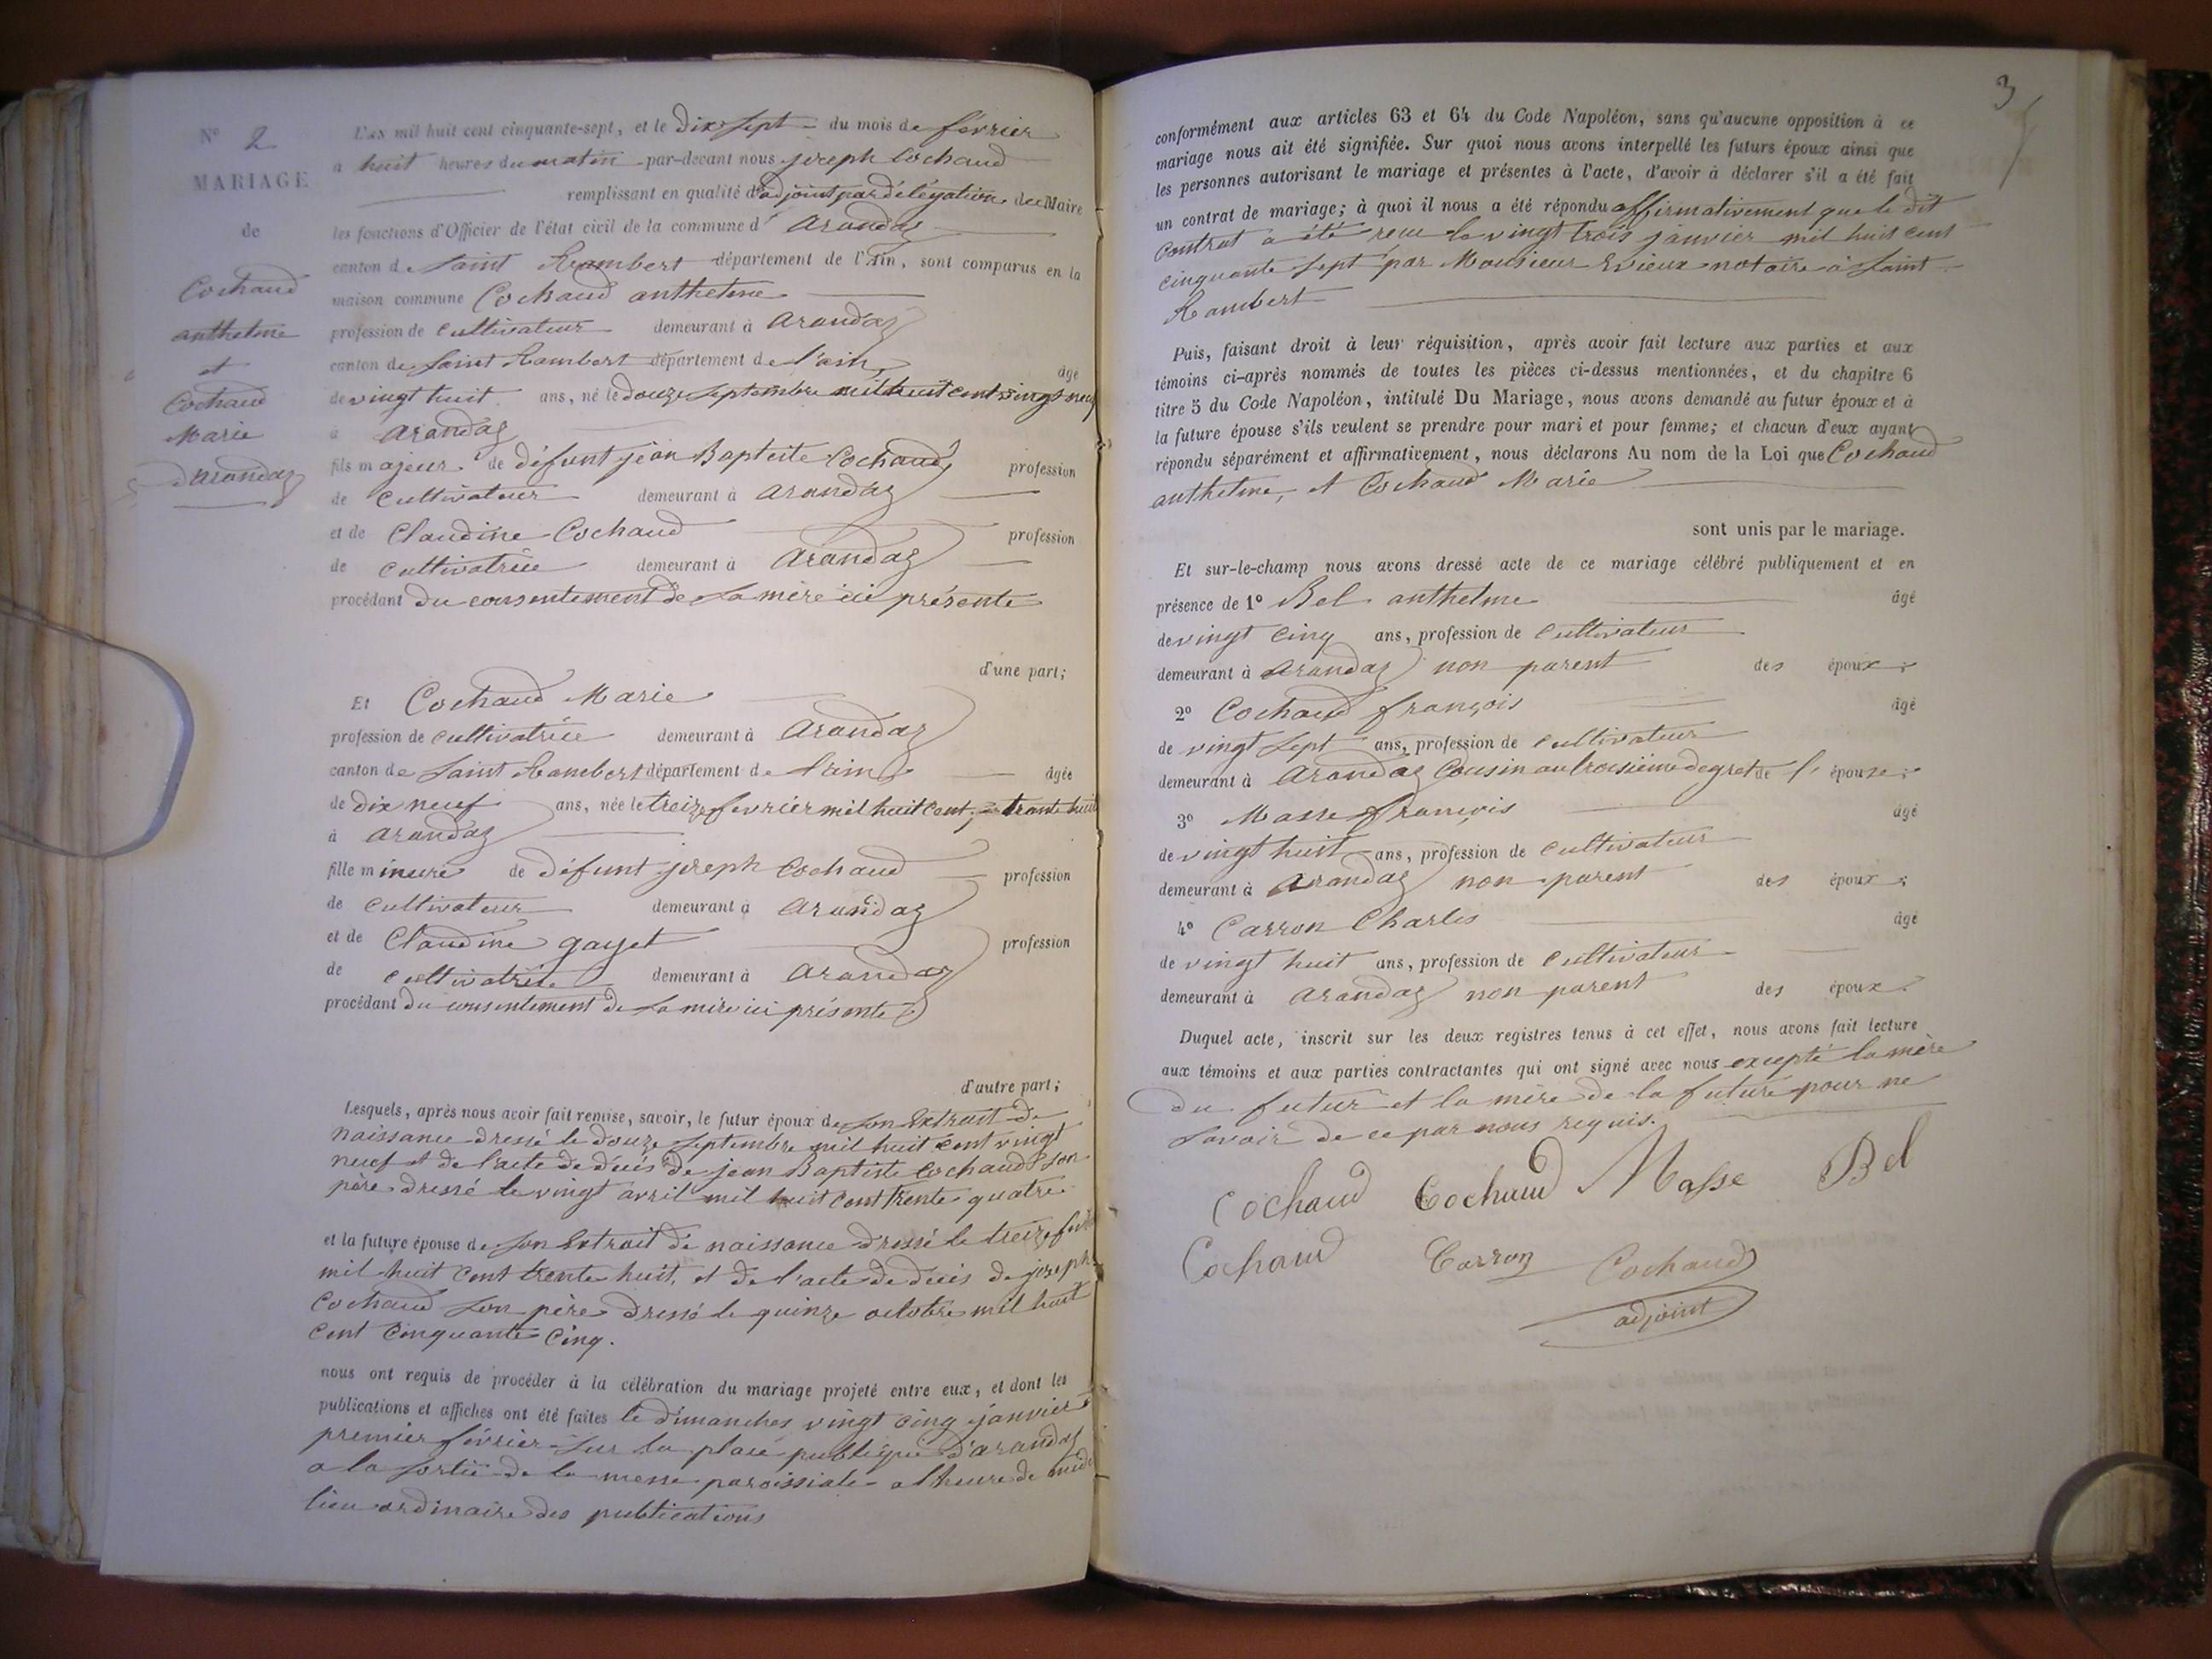 N° 2
MARIAGE
de
Cochaud
anthelme
et
Cochaud
Marie
d'arandaz
L'an mil huit cent cinquante-sept, et le dix sept du mois de février
a huit heures du matin par-devant nous joseph Cochaud
remplissant en qualité d'adjoint par délégation du Maire
les fonctions d'Officier de l'état civil de la commune d' arandaz
canton de Saint Rambert département de l'Ain, sont comparus en la
maison commune Cochaud anthelme
profession de cultivateur demeurant à arandaz
canton de Saint Rambert département de l'ain, âgé
de vingt huit ans, né le douze septembre mil huit cent vingt neuf
à arandaz
fils majeur de défunt jean Baptiste Cochaud, profession
de cultivateur demeurant à arandaz
et de Claudine Cochaud profession
de cultivatrice demeurant à arandaz
procédant du consentement de sa mère ici présente
d'une part;
Et Cochaud Marie
profession de cultivatrice demeurant à arandaz
canton de Saint Rambert département de l'ain âgée
de dix neuf ans, née le treize fevrier mil huit cent trente huit
à arandaz
fille mineure de défunt joseph Cochaud profession
de cultivateur demeurant à arandaz
et de Claudine gayet profession
de cultivatrice demeurant à arandaz
procédant du consentement de sa mère ici présente
d'autre part;
Lesquels, après nous avoir fait remise, savoir, le futur époux de son Extrait de
naissance dressé le douze septembre mil huit cent vingt
neuf et de l'acte de décès de jean Baptiste Cochaud son
père dressé le vingt avril mil huit cent trente quatre
et la future épouse de son Extrait de naissance dressé le treize
mil huit cent trente huit, et de l'acte de décès de joseph
Cochaud son père dressé le quinze octobre mil huit
cent cinquante cinq.
nous ont requis de procéder à la célébration du mariage projeté entre eux, et dont les
publications et affiches ont été faites le dimanches vingt cinq janvier et
premier février sur la place publique d'arandaz
a la sortie de la messe paroissiale a l'heure de midi
lieu ordinaire des publications
3
conformément aux articles 63 et 64 du Code Napoléon, sans qu'aucune opposition à ce
mariage nous ait été signifiée. Sur quoi nous avons interpellé les futurs époux ainsi que
les personnes autorisant le mariage et présentes à l'acte, d'avoir à déclarer s'il a été fait
un contrat de mariage; à quoi il nous a été répondu affirmativement que le dit
contrat a été reçu le vingt trois janvier mil huit cent
cinquante sept par Monsieur Evieux notaire à Saint
Rambert
Puis, faisant droit à leur réquisition, après avoir fait lecture aux parties et aux
témoins ci-après nommés de toutes les pièces ci-dessus mentionnées, et du chapitre 6
titre 5 du Code Napoléon, intitulé Du Mariage, nous avons demandé au futur époux et à
la future épouse s'ils veulent se prendre pour mari et pour femme; et chacun d'eux ayant
répondu séparément et affirmativement, nous déclarons Au nom de la Loi que Cochaud
anthelme, et Cochaud Marie
sont unis par le mariage.
Et sur-le-champ nous avons dressé acte de ce mariage célébré publiquement et en
présence de 1° Bel anthelme âgé
de vingt cinq ans, profession de cultivateur
demeurant à arandaz non parent des époux;
2° Cochaud françois âgé
de vingt sept ans, profession de cultivateur
demeurant à arandaz Cousin au troisieme degret de l' épouse;
3° Masse françois âgé
de vingt huit ans, profession de cultivateur
demeurant à arandaz non parent des époux;
4° Carron Charles âgé
de vingt huit ans, profession de cultivateur
demeurant à arandaz non parent des époux.
Duquel acte, inscrit sur les deux registres tenus à cet effet, nous avons fait lecture
aux témoins et aux parties contractantes qui ont signé avec nous excepté la mère
du futur et la mère de la future pour ne
savoir de ce par nous requis.
Cochaud Cochaud Masse Bel
Cochaud Carron Cochaud
adjoint